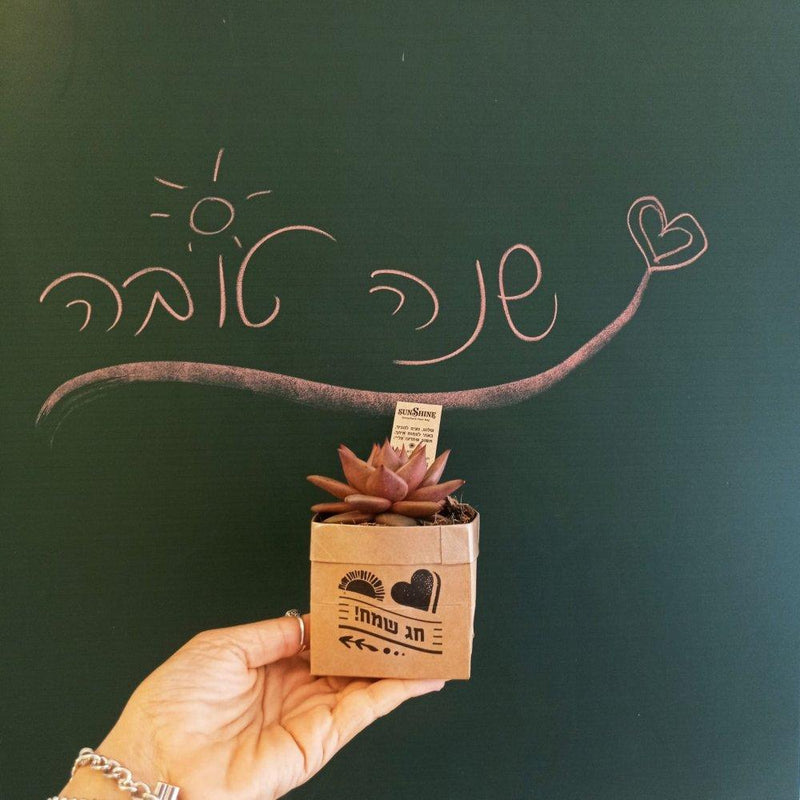 שנה טובה
SUNSHINE
חג שמח!